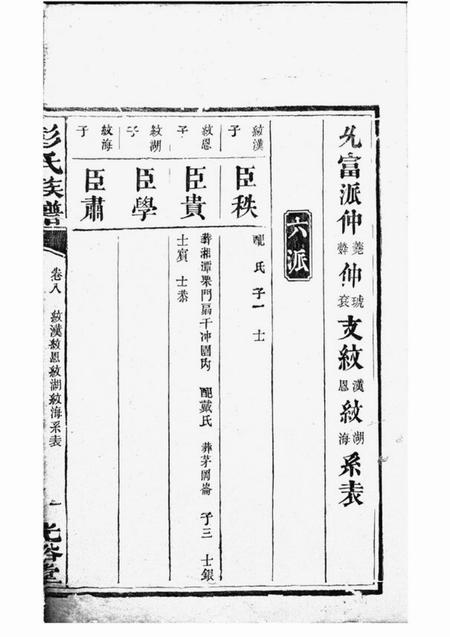 允富派仲蕘聲仲琥袞支紋漢恩紋湖海系表
六派
紋漢子
臣秩
配 氏 子一 士
紋恩子
臣貴
葬湘潭栗門扇干冲園内 配戴氏 葬茅岡崙 子三 士銀
士賓 士泰
紋湖子
臣學
紋海子
臣肅
彭氏族譜
卷八 紋漢紋恩紋湖紋海系表
一
光裕堂